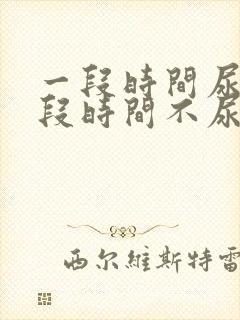 一段時間尿
段時間不尿
西尔維斯特雷